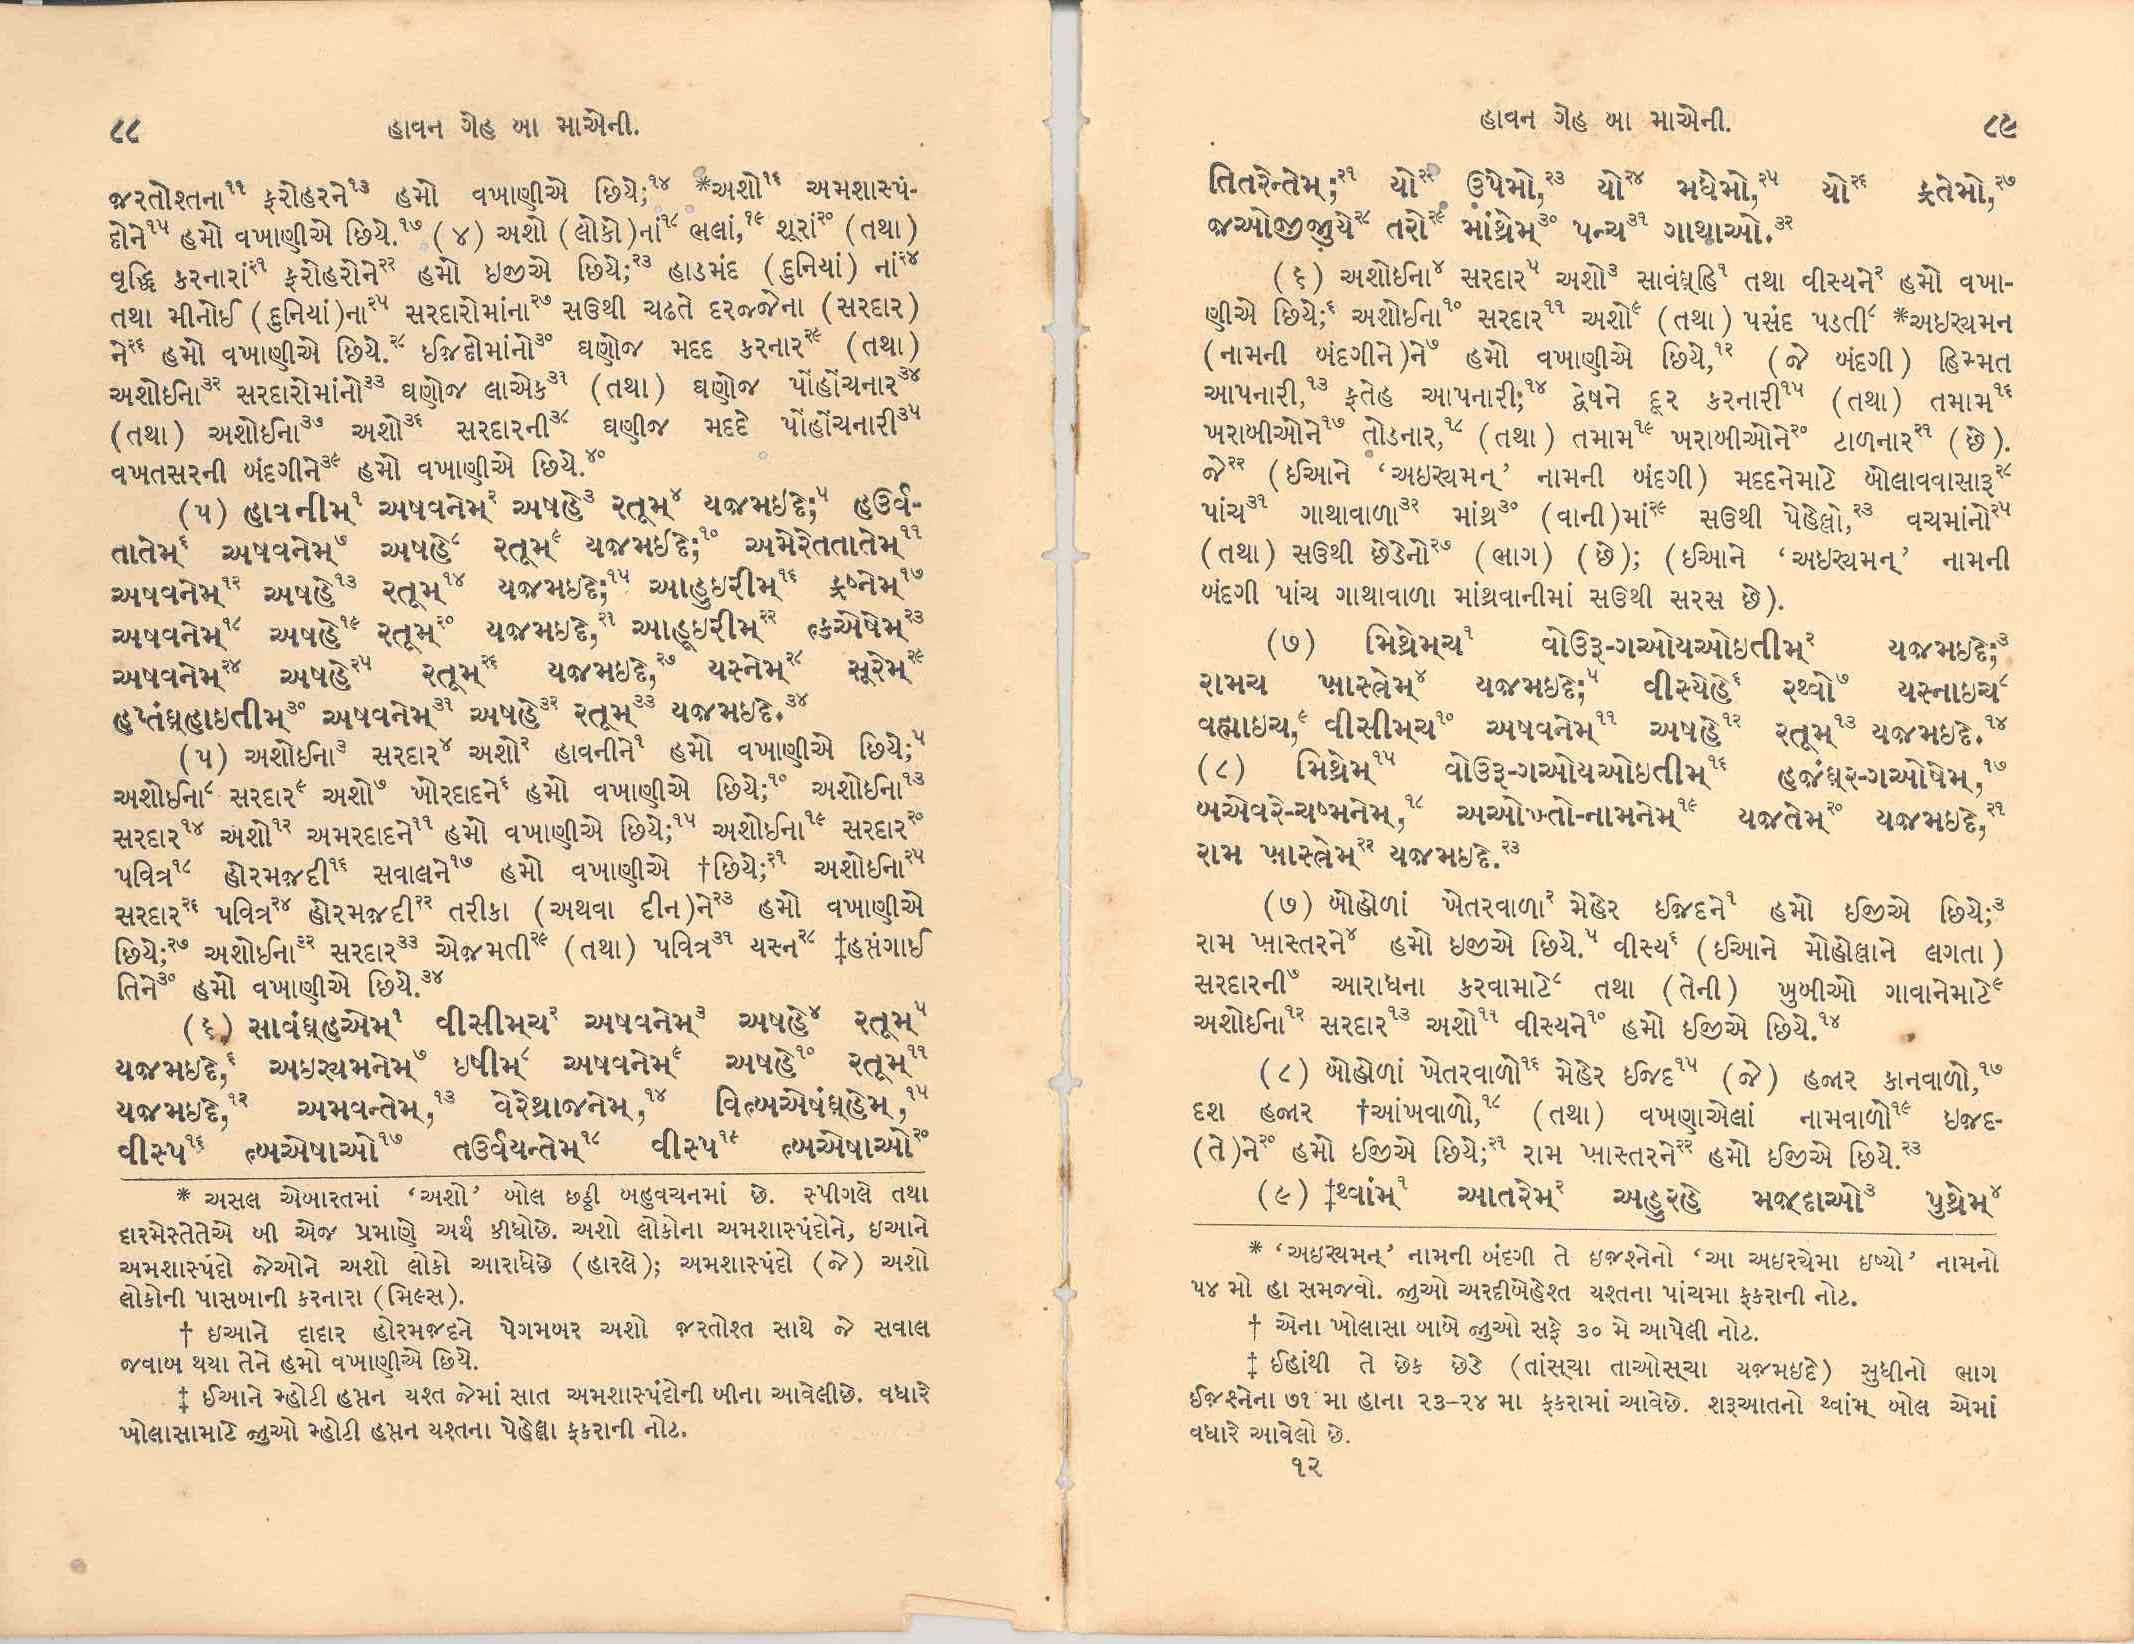 ૮૮
હાવન ગેહ બા માએની.
જ઼રતોશ્તના૧૧ ફરોહરને૧૩ હમો વખાણીએ છિયે;૧૪ *અશો૧૬ અમશાસ્પં-
દોને૧૫ હમો વખાણીએ છિયે.૧૭ (૪) અશો (લોકો)નાં૧૮ ભલાં,૧૯ શૂરાં૨૦ (તથા)
વૃદ્ધિ કરનારાં૨૧ ફરોહરોને૨૨ હમો ઇજીએ છિયે;૨૩ હાડમંદ (દુનિયાં) નાં૨૪
તથા મીનોઈ (દુનિયાં)ના૨૫ સરદારોમાંના૨૭ સઉથી ચઢતે દરજ્જેના (સરદાર)
ને૨૬ હમો વખાણીએ છિયે.૨૮ ઈજ઼દોમાંનો૩૦ ઘણોજ મદદ કરનાર૨૯ (તથા)
અશોઈના૩૨ સરદારોમાંનો૩૩ ઘણોજ લાએક૩૧ (તથા) ઘણોજ પોંહોંચનાર૩૪
(તથા) અશોઈના૩૭ અશો૩૬ સરદારની૩૮ ઘણીજ મદદે પોંહોંચનારી૩૫
વખતસરની બંદગીને૩૯ હમો વખાણીએ છિયે.૪૦
(૫) હાવનીમ્૧ અષવનેમ્૨ અષહે૩ રતૂમ્૪ યજ઼મઇદે;૫ હઉર્વ-
તાતેમ્૬ અષવનેમ્૭ અષહે૮ રતૂમ્૯ યજ઼મઇદે;૧૦ અમેરેતતાતેમ્૧૧
અષવનેમ્૧૨ અષહે૧૩ રતૂમ્૧૪ યજ઼મઇદે;૧૫ આહુઇરીમ્૧૬ ફ્રષ્નેમ્૧૭
અષવનેમ્૧૮ અષહે૧૯ રતૂમ્૨૦ યજ઼મઇદે,૨૧ આહૂઇરીમ્૨૨ ત્કએષેમ્૨૩
અષવનેમ્૨૪ અષહે૨૫ રતૂમ્૨૬ યજ઼મઇદે,૨૭ યસ્નેમ્૨૮ સૂરેમ્૨૯
હપ્તંઘ્હાઇતીમ્૩૦ અષવનેમ્૩૧ અષહે૩૨ રતૂમ્૩૩ યજ઼મઇદે.૩૪
(૫) અશોઈના૩ સરદાર૪ અશો૨ હાવનીને૧ હમો વખાણીએ છિયે;૫
અશોઈના૮ સરદાર૯ અશો૭ ખોરદાદને૬ હમો વખાણીએ છિયે;૧૦ અશોઈના૧૩
સરદાર૧૪ અશો૧૨ અમરદાદને૧૧ હમો વખાણીએ છિયે;૧૫ અશોઈના૧૯ સરદાર૨૦
પવિત્ર૧૮ હોરમજ઼દી૧૬ સવાલને૧૭ હમો વખાણીએ †છિયે;૨૧ અશોઈના૨૫
સરદાર૨૬ પવિત્ર૨૪ હોરમજ઼દી૨૨ તરીકા (અથવા દીન)ને૨૩ હમો વખાણીએ
છિયે;૨૭ અશોઈના૩૨ સરદાર૩૩ એજ઼મતી૨૯ (તથા) પવિત્ર૩૧ યસ્ન૨૮ ‡હપ્તંગાઈ
તિને૩૦ હમો વખાણીએ છિયે.૩૪
(૬) સાવંઘ્હએમ્૧ વીસીમ્ચ૨ અષવનેમ્૩ અષહે૪ રતૂમ્૫
યજ઼મઇદે,૬ અઇર્યમનેમ્૭ ઇષીમ્૮ અષવનેમ્૯ અષહે૧૦ રતૂમ્૧૧
યજ઼મઇદે,૧૨ અમવન્તેમ્,૧૩ વેરેથ્રાજનેમ્,૧૪ વિત્બએષંઘ્હેમ્,૧૫
વીસ્પ૧૬ ત્બએષાઓ૧૭ તઉર્વયન્તેમ્૧૮ વીસ્પ૧૯ ત્બએષાઓ૨૦
* અસલ એબારતમાં ‘અશો’ બોલ છઠ્ઠી બહુવચનમાં છે. સ્પીગલે તથા
દારમેસ્તેતેએ બી એજ પ્રમાણે અર્થ કીધોછે. અશો લોકોના અમશાસ્પંદોને, ઇઆને
અમશાસ્પંદો જેઓને અશો લોકો આરાધેછે (હારલે); અમશાસ્પંદો (જે) અશો
લોકોની પાસબાની કરનારા (મિલ્સ).
† ઇઆને દાદાર હોરમજ઼દને પેગમબર અશો જ઼રતોશ્ત સાથે જે સવાલ
જવાબ થયા તેને હમો વખાણીએ છિયે.
‡ ઈઆને મ્હોટી હપ્તન યશ્ત જેમાં સાત અમશાસ્પંદોની બીના આવેલીછે. વધારે
ખોલાસામાટે જુઓ મ્હોટી હપ્તન યશ્તના પેહેલ્લા ફકરાની નોટ.
હાવન ગેહ બા માએની.
૮૯
તિતરેન્તેમ્;૨૧ યો૨૨ ઉપેમો,૨૩ યો૨૪ મધેમો,૨૫ યો૨૬ ફ્રતેમો,૨૭
જ઼ઓજીજીયે૨૮ તરો૨૯ માંથ્રેમ્૩૦ પન્ચ૩૧ ગાથાઓ.૩૨
(૬) અશોઈના૪ સરદાર૫ અશો૩ સાવંઘ્હિ૧ તથા વીસ્યને૨ હમો વખા-
ણીએ છિયે;૬ અશોઈના૧૦ સરદાર૧૧ અશો૯ (તથા) પસંદ પડતી૮ *અઇર્યમન
(નામની બંદગીને)ને૭ હમો વખાણીએ છિયે,૧૨ (જે બંદગી) હિમ્મત
આપનારી,૧૩ ફતેહ આપનારી;૧૪ દ્વેષને દૂર કરનારી૧૫ (તથા) તમામ૧૬
ખરાબીઓને૧૭ તોડનાર,૧૮ (તથા) તમામ૧૯ ખરાબીઓને૨૦ ટાળનાર૨૧ (છે).
જે૨૨ (ઈઆને ‘અઇર્યમન્’ નામની બંદગી) મદદનેમાટે બોલાવવાસારૂ૨૮
પાંચ૩૧ ગાથાવાળા૩૨ માંથ્ર૩૦ (વાની)માં૨૯ સઉથી પેહેલ્લો,૨૩ વચમાંનો૨૫
(તથા) સઉથી છેડેનો૨૭ (ભાગ) (છે); (ઈઆને ‘અઇર્યમન્’ નામની
બંદગી પાંચ ગાથાવાળા માંથ્રવાનીમાં સઉથી સરસ છે).
(૭) મિથ્રેમ્ચ૧ વોઉરૂ-ગઓયઓઇતીમ્૨ યજ઼મઇદે;૩
રામચ ખ઼ાસ્ત્રેમ્૪ યજ઼મઇદે;૫ વીસ્યેહે૬ રથ્વો૭ યસ્નાઇચ૮
વહ્માઇચ,૯ વીસીમ્ચ૧૦ અષવનેમ્૧૧ અષહે૧૨ રતૂમ્૧૩ યજ઼મઇદે.૧૪
(૮) મિથ્રેમ્૧૫ વોઉરૂ-ગઓયઓઇતીમ્૧૬ હજ઼ંઘ્ર-ગઓષેમ્,૧૭
બએવરે-ચષ્મનેમ્,૧૮ અઓખ્તો-નામનેમ્૧૯ યજ઼તેમ્૨૦ યજ઼મઇદે,૨૧
રામ ખ઼ાસ્ત્રેમ્૨૨ યજ઼મઇદે.૨૩
(૭) બોહોળાં ખેતરવાળા૨ મેહેર ઈજ઼દને૧ હમો ઈજીએ છિયે;૩
રામ ખ઼ાસ્તરને૪ હમો ઇજીએ છિયે.૫ વીસ્ય૬ (ઈઆને મોહોલ્લાને લગતા)
સરદારની૭ આરાધના કરવામાટે૮ તથા (તેની) ખુબીઓ ગાવાનેમાટે૯
અશોઈના૧૨ સરદાર૧૩ અશો૧૧ વીસ્યને૧૦ હમો ઈજીએ છિયે.૧૪
(૮) બોહોળાં ખેતરવાળો૧૬ મેહેર ઈજદ૧૫ (જે) હજાર કાનવાળો,૧૭
દશ હજાર †આંખવાળો,૧૮ (તથા) વખણાએલાં નામવાળો૧૯ ઇજદ-
(તે)ને૨૦ હમો ઈજીએ છિયે;૨૧ રામ ખ઼ાસ્તરને૨૨ હમો ઈજીએ છિયે.૨૩
(૯) ‡થ્વાંમ્૧ આતરેમ્૨ અહુરહે મજ઼્દાઓ૩ પુથ્રેમ્૪
* ‘અઇર્યમન્’ નામની બંદગી તે ઇજ઼શ્નેનો ‘આ અઇરયેમા ઇષ્યો’ નામનો
૫૪ મો હા સમજવો. જુઓ અરદીબેહેશ્ત યશ્તના પાંચમા ફકરાની નોટ.
† એના ખોલાસા બાબે જુઓ સફે ૩૦ મે આપેલી નોટ.
‡ ઈહાંથી તે છેક છેડે (તાંસ્ચા તાઓસ્ચા યજ઼મઇદે) સુધીનો ભાગ
ઈજ઼શ્નેના ૭૧ મા હાના ૨૩–૨૪ મા ફકરામાં આવેછે. શરૂઆતનો થ્વાંમ્ બોલ એમાં
વધારે આવેલો છે.
૧૨